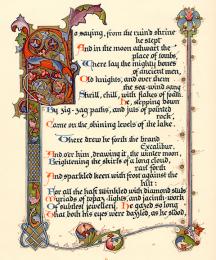 So saying, from the ruin'd shrine
he stept
And in the moon athwart the
place of tombs,
Where lay the mighty bones
of ancient men,
Old knights, and over them
the sea-wind sang
Shrill, chill, with flakes of foam.
He, stepping down
By zig-zag paths, and juts of pointed
rock,
Came on the shining levels of the lake.
There drew he forth the brand
Excalibur,
And o'er him, drawing it, the winter moon,
Brightening the skirts of a long cloud,
ran forth
And sparkled keen with frost against the
hilt:
For all the haft twinkled with diamond studs
Myriads of topaz-lights, and jacinth-work
Of subtlest jewellery. He gazed so long
That both his eyes were dazzled, as he stood,